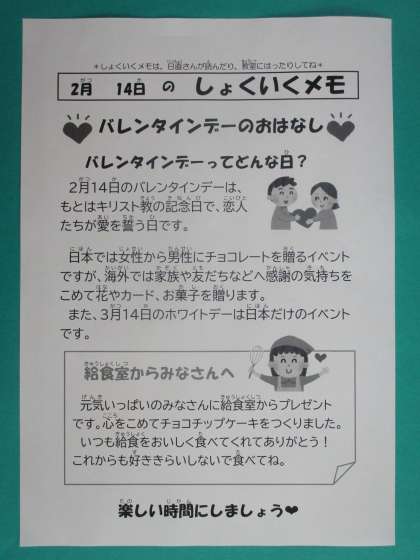 ＊しょくいくメモは、日直さんが読んだり、教室にはったりしてね＊
2月 14日 の しょくいくメモ
バレンタインデーのおはなし
バレンタインデーってどんな日？
2月14日のバレンタインデーは、
もとはキリスト教の記念日で、恋人
たちが愛を誓う日です。
日本では女性から男性にチョコレートを贈るイベント
ですが、海外では家族や友だちなどへ感謝の気持ちを
こめて花やカード、お菓子を贈ります。
また、3月14日のホワイトデーは日本だけのイベント
です。
給食室からみなさんへ
元気いっぱいのみなさんに給食室からプレゼント
です。心をこめてチョコチップケーキをつくりました。
いつも給食をおいしく食べてくれてありがとう！
これからも好ききらいしないで食べてね。
楽しい時間にしましょう♥